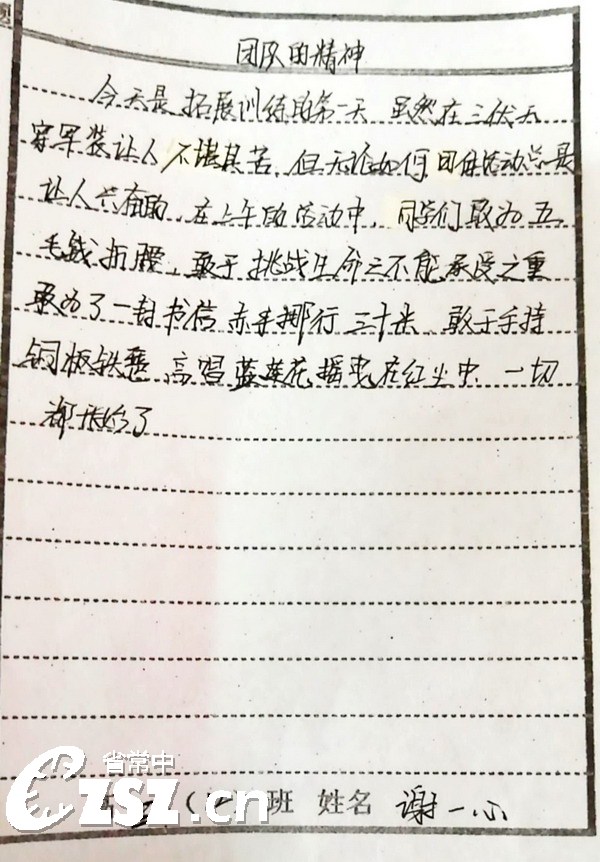 团队的精神
今天是拓展训练的第一天 虽然在三伏天
穿军装让人不堪其苦，但无论如何，团体活动总是
让人共有的，在上午的活动中，同学们敢为五
毛钱折腰，敢于挑战生命之不能承受之重
敢为了一封书信赤手挪行三十米，敢于手持
铜板铁琶，高唱蓝莲花摇曳在红尘中，一切
都开始了
省常中
CZSZ.cn
班 姓名 谢一